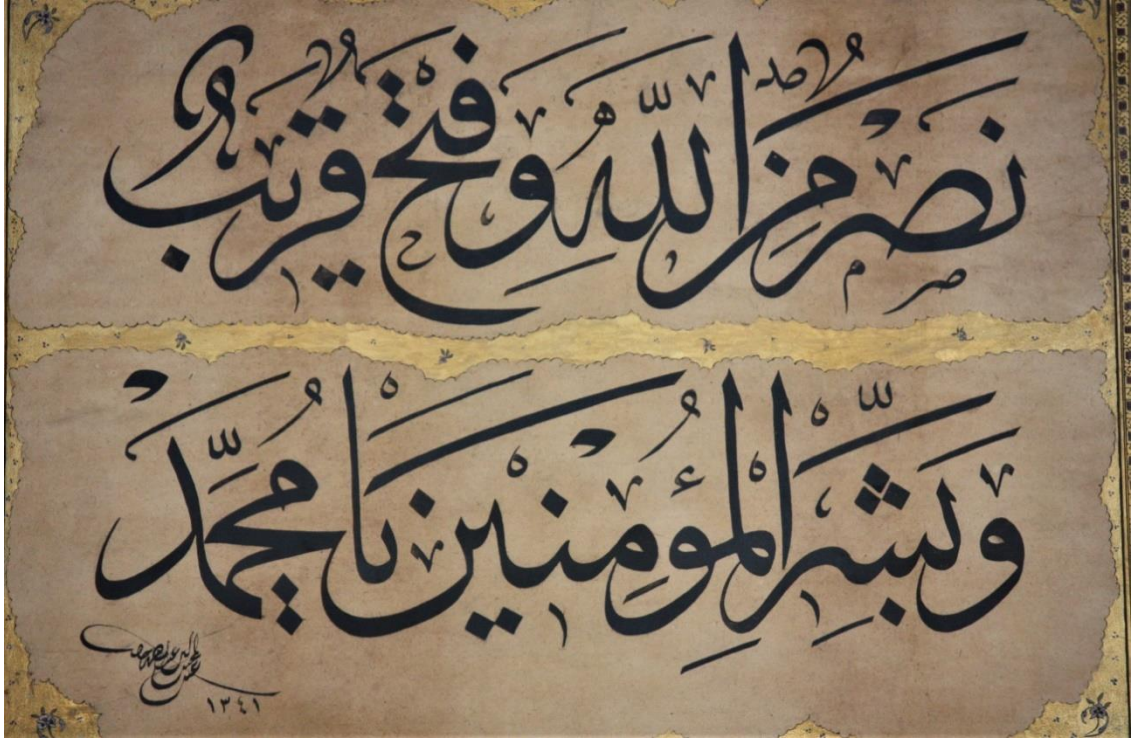 نَصْرٌ مِنَ اللّٰهِ وَفَتْحٌ قَرِيبٌ
وَبَشِّرِ الْمُؤْمِنِينَ يَا مُحَمَّدْ
١٣٤١